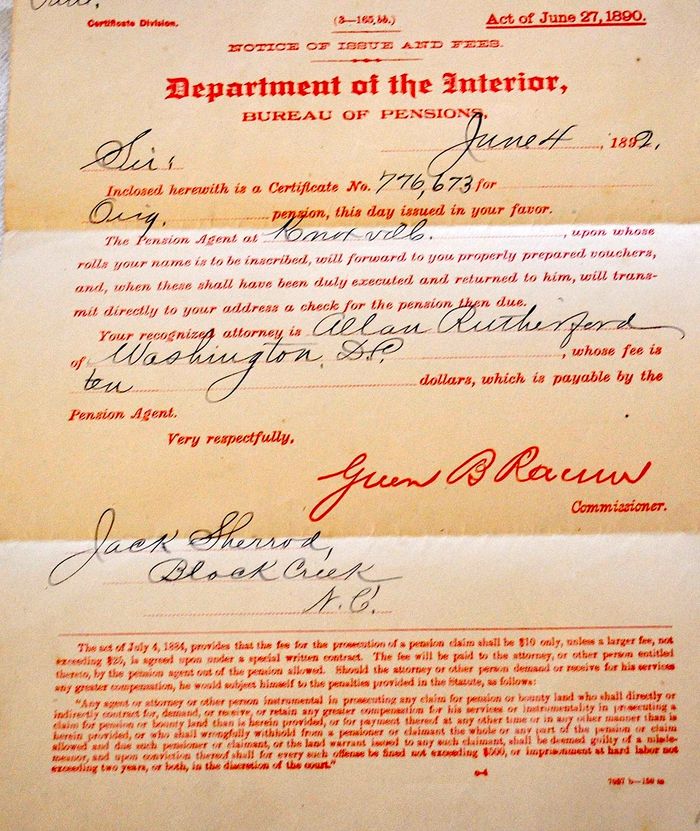 Certificate Division.
(3—165, bb.)
Act of June 27, 1890.
NOTICE OF ISSUE AND FEES.
Department of the Interior,
BUREAU OF PENSIONS,
June 4, 1892.
Sir:
Inclosed herewith is a Certificate No. 776,673 for
Orig. pension, this day issued in your favor.
The Pension Agent at Knoxville, upon whose
rolls your name is to be inscribed, will forward to you properly prepared vouchers,
and, when these shall have been duly executed and returned to him, will trans-
mit directly to your address a check for the pension then due.
Your recognized attorney is Allan Rutherford
of Washington, D.C., whose fee is
ten dollars, which is payable by the
Pension Agent.
Very respectfully,
Green B Raum
Commissioner.
Jack Sherrod,
Black Creek
N.C.
The act of July 4, 1884, provides that the fee for the prosecution of a pension claim shall be $10 only, unless a larger fee, not
exceeding $25, is agreed upon under a special written contract. The fee will be paid to the attorney, or other person entitled
thereto, by the pension agent out of the pension allowed. Should the attorney or other person demand or receive for his services
any greater compensation, he would subject himself to the penalties provided in the Statute, as follows:
"Any agent or attorney or other person instrumental in prosecuting any claim for pension or bounty land who shall directly or
indirectly contract for, demand, or receive, or retain any greater compensation for his services or instrumentality in prosecuting a
claim for pension or bounty land than is herein provided, or for payment thereof at any other time or in any other manner than is
herein provided, or who shall wrongfully withhold from a pensioner or claimant the whole or any part of the pension or claim
allowed and due such pensioner or claimant, or the land warrant issued to any such claimant, shall be deemed guilty of a misde-
meanor, and upon conviction thereof shall for every such offense be fined not exceeding $500, or imprisonment at hard labor not
exceeding two years, or both, in the discretion of the court."